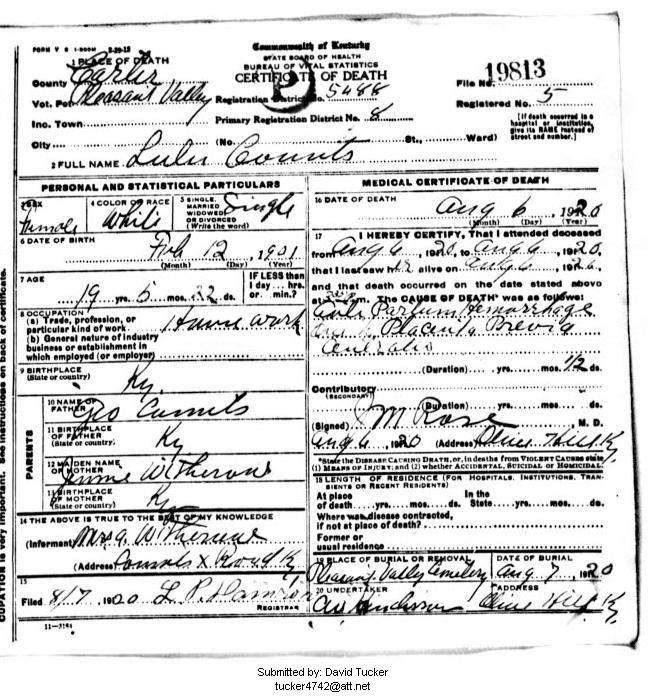 FORM V S 1-500M 2-29-12
Commonwealth of Kentucky
STATE BOARD OF HEALTH
BUREAU OF VITAL STATISTICS
CERTIFICATE OF DEATH
1 PLACE OF DEATH
County Carter
Vot. Pct Pleasant Valley
Inc. Town
City
Registration District No. 5488
Primary Registration District No. 8
(No. St., Ward)
File No. 19813
Registered No. 5
[If death occurred in a hospital or institution, give its NAME instead of street and number.]
2 FULL NAME Lulu Counts
PERSONAL AND STATISTICAL PARTICULARS
3 SEX Female
4 COLOR OR RACE White
5 SINGLE, MARRIED WIDOWED OR DIVORCED (Write the word) Single
6 DATE OF BIRTH Feb 12, 1901
(Month) (Day) (Year)
7 AGE 19 yrs. 5 mos. ds.
IF LESS than 1 day hrs. or min.?
8 OCCUPATION
(a) Trade, profession, or particular kind of work House work
(b) General nature of industry business or establishment in which employed (or employer)
9 BIRTHPLACE
(State or country) Ky.
PARENTS
10 NAME OF FATHER Geo Counts
11 BIRTHPLACE OF FATHER (State or country) Ky
12 MAIDEN NAME OF MOTHER Jennie
13 BIRTHPLACE OF MOTHER (State or country) Ky
14 THE ABOVE IS TRUE TO THE BEST OF MY KNOWLEDGE
(Informant) Mrs
(Address) Ky
15
Filed 8/7 1920 L. P.
REGISTRAR
11-3184
MEDICAL CERTIFICATE OF DEATH
16 DATE OF DEATH Aug 6, 1920
(Month) (Day) (Year)
17 I HEREBY CERTIFY, That I attended deceased
from Aug 6, 1920, to Aug 6, 1920,
that I last saw her alive on Aug 6, 1920,
and that death occurred on the date stated above
at m. The CAUSE OF DEATH* was as follows:
Hemorrhage
Placenta Previa
(Duration) yrs. mos. 1/2 ds.
Contributory
(SECONDARY)
(Duration) yrs. mos. ds.
(Signed) J M Rose M. D.
Aug 6, 1920 (Address) Olive Hill Ky
*State the DISEASE CAUSING DEATH, or, in deaths from VIOLENT CAUSES state (1) MEANS OF INJURY; and (2) whether ACCIDENTAL, SUICIDAL or HOMICIDAL.
18 LENGTH OF RESIDENCE (FOR HOSPITALS, INSTITUTIONS, TRANSIENTS OR RECENT RESIDENTS)
At place of death yrs. mos. ds. In the State yrs. mos. ds.
Where was disease contracted, if not at place of death?
Former or usual residence
19 PLACE OF BURIAL OR REMOVAL Pleasant Valley Cemetery
DATE OF BURIAL Aug 7, 1920
20 UNDERTAKER Henderson
ADDRESS Olive Hill Ky
CUPATION is very important. See instructions on back of certificate.
Submitted by: David Tucker
tucker4742@att.net